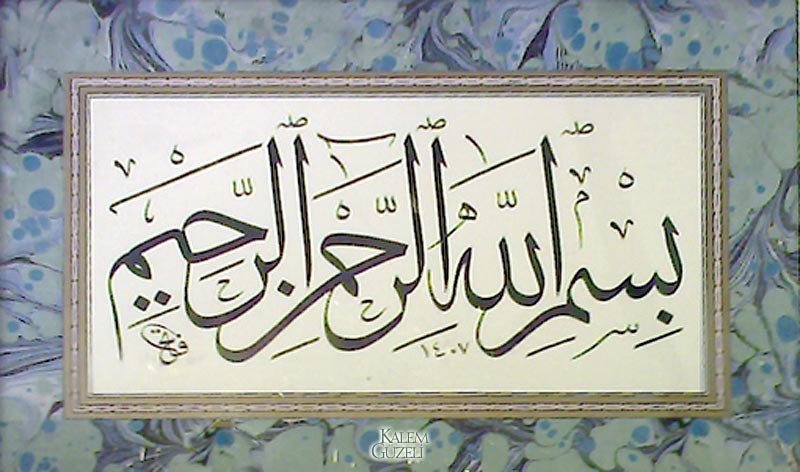 بسم الله الرحمن الرحيم
١٤٠٧
KALEM
GÜZELİ